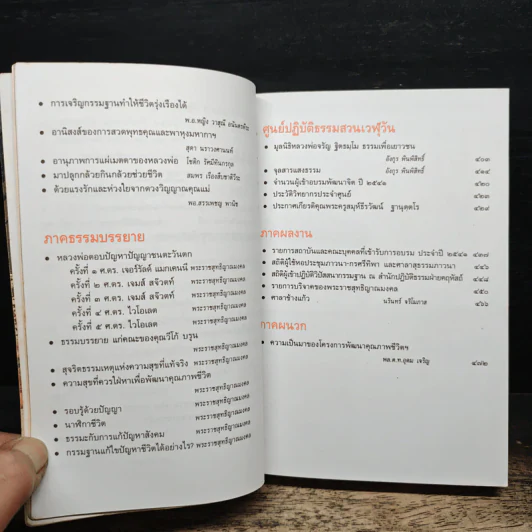 • การเจริญกรรมฐานทำให้ชีวิตรุ่งเรืองได้
พ.อ.หญิง วาสุณี
• อานิสงส์ของการสวดพุทธคุณและพาหุงมหากาฯ
สุดา
• อานุภาพการแผ่เมตตาของหลวงพ่อ โชติก
• มาปลูกกล้วยกินกล้วยช่วยชีวิต สมพร
• ด้วยแรงรักและห่วงใยจากดวงวิญญาณคุณแม่
พ.อ.วรรเพชญ พานิช
ภาคธรรมบรรยาย
• หลวงพ่อตอบปัญหาปัญญาชนตะวันตก
ครั้งที่ ๑ ศ.ดร. เจอร์รัลด์ แมกเคนนี พระราชสุทธิญาณมงคล
ครั้งที่ ๒ ศ.ดร. เจมส์ สจ๊วตท์ พระราชสุทธิญาณมงคล
ครั้งที่ ๓ ศ.ดร. เจมส์ สจ๊วตท์ พระราชสุทธิญาณมงคล
ครั้งที่ ๔ ศ.ดร. ไวโอเลต พระราชสุทธิญาณมงคล
ครั้งที่ ๕ ศ.ดร. ไวโอเลต พระราชสุทธิญาณมงคล
• ธรรมบรรยาย แก่คณะของคุณวีโก้ บรูน
พระราชสุทธิญาณมงคล
• สุจริตธรรมเหตุแห่งความสุขที่แท้จริง พระราชสุทธิญาณมงคล
• ความสุขที่ควรใฝ่หาเพื่อพัฒนาคุณภาพชีวิต
พระราชสุทธิญาณมงคล
• รอบรู้ด้วยปัญญา พระราชสุทธิญาณมงคล
• นาฬิกาชีวิต พระราชสุทธิญาณมงคล
• ธรรมะกับการแก้ปัญหาสังคม พระราชสุทธิญาณมงคล
• กรรมฐานแก้ไขปัญหาชีวิตได้อย่างไร? พระราชสุทธิญาณมงคล
ศูนย์ปฏิบัติธรรมสวนเวฬุวัน
• มูลนิธิหลวงพ่อจรัญ ฐิตธมฺโม ธรรมเพื่อเยาวชน
อังกูร พันพิสิทธิ์ ๔๑๓
• จุลสารแสงธรรม อังกูร พันพิสิทธิ์ ๔๑๔
• จำนวนผู้เข้าอบรมพัฒนาจิต ปี ๒๕๔๑ ๔๒๐
• ประวัติวิทยากรประจำศูนย์ ๔๒๓
• ประกาศเกียรติคุณพระครูสมุห์ธีรวัฒน์ ฐานุตฺตโร ๔๒๙
ภาคผลงาน
• รายการสถาบันและคณะบุคคลที่เข้ารับการอบรม ประจำปี ๒๕๔๑ ๔๓๗
• สถิติผู้ใช้หอประชุมภาวนา-กรศรีทิพา และศาลาสุธรรมภาวนา ๔๔๖
• สถิติผู้เข้าปฏิบัติวิปัสสนากรรมฐาน ณ สำนักปฏิบัติธรรมฝ่ายคฤหัสถ์ ๔๔๘
• รายการบริจาคของพระราชสุทธิญาณมงคล ๔๕๐
• ศาลาช้างแก้ว นรินทร์ จรัโมภาส ๔๖๖
ภาคผนวก
• ความเป็นมาของโครงการพัฒนาคุณภาพชีวิตฯ
พล.ต.ท.อุดม เจริญ ๔๗๒